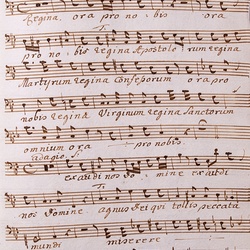 Regina, ora pro no bis ora
pro no bis regina Apostolo rum regina
Martyrum regina Confessorum ora pro
nobis regina Virginum regina Sanctorum
omnium ora pro nobis.
adagio
exaudi nos Do mine exaudi
nos Domine agnus Dei qui tollis peccata
mundi miserere